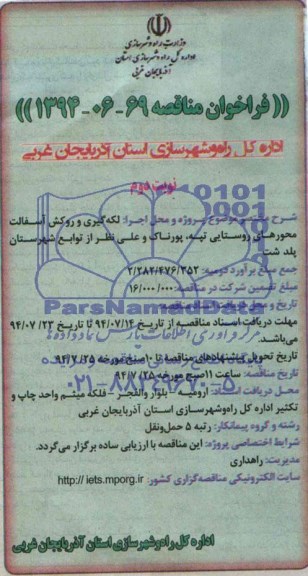 وزارت راه و شهرسازی
اداره کل راه و شهرسازی استان
آذربایجان غربی
(( فراخوان مناقصه ۶۹-۰۶-۱۳۹۴ ))
اداره کل راه‌وشهرسازی استان آذربایجان غربی
نوبت دوم
شرح مختصر موضوع پروژه و محل اجرا: لکه‌گیری و روکش آسفالت
محورهای روستایی تپه، پورناک و علی نظر از توابع شهرستان
پلدشت
جمع مبلغ برآورد دومیه: ۲/۳۸۲/۴۷۶/۳۵۲
مبلغ تضمین شرکت در مناقصه: ۱۶/۰۰۰/۰۰۰
مهلت دریافت اسناد مناقصه از تاریخ ۹۴/۰۷/۱۴ تا تاریخ ۹۴/۰۷/۲۳
می‌باشد.
تاریخ تحویل پیشنهادهای مناقصه تا ۱۰صبح مورخه ۹۴/۷/۲۵
تاریخ مناقصه: ساعت ۱۱صبح مورخه ۹۴/۷/۲۵
محل دریافت اسناد: ارومیه بلوار والفجر - فلکه میثم واحد چاپ و
تکثیر اداره کل راه‌وشهرسازی استان آذربایجان غربی
رشته و گروه پیمانکار: رتبه ۵ حمل‌ونقل
شرایط اختصاصی پروژه: این مناقصه با ارزیابی ساده برگزار می‌گردد.
مدیریت: راهداری
سایت الکترونیکی مناقصه‌گزاری کشور: http://iets.mporg.ir
اداره کل راه‌وشهرسازی استان آذربایجان غربی
ParsNamadData
۰۲۱-۸۸۳۴۹۶۷۰-۵